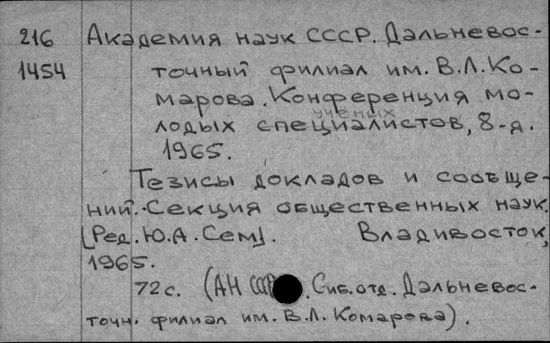 216 Академия наук СССР. Дальневос-
1454 точный филиал им. В.Л.Ко-
марова. Конференция мо-
ученых
лодых специалистов, 8-я.
1965.
Тезисы докладов и сообще-
ний. Секция общественных наук.
[Ред. Ю.А. Сем]. Владивосток,
1965.
72 с. (АН СССР. Сиб. отд. Дальневос-
точн. филиал им. В.Л. Комарова).